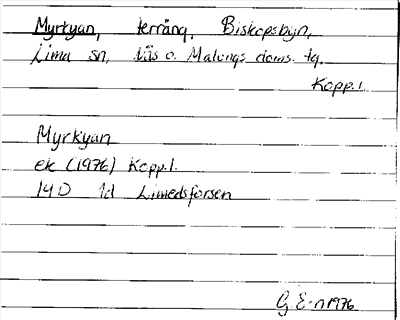 Myrkyan, terräng, Biskopsbyn,
Lima sn, Nås o. Malungs doms. tg.
Kopp.l.
Myrkyan
ek (1976) Kopp.l.
14D 1d Limedsforsen
G.E-n 1976